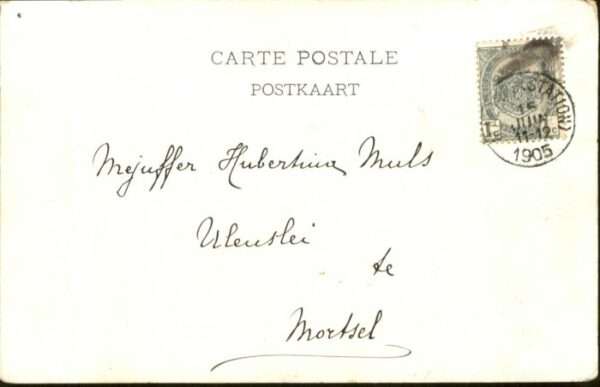 CARTE POSTALE
POSTKAART
(STATION)
15
JUIN
11-12
1905
1c
Mejuffer Hubertina Muls
Ulenslei
te
Mortsel